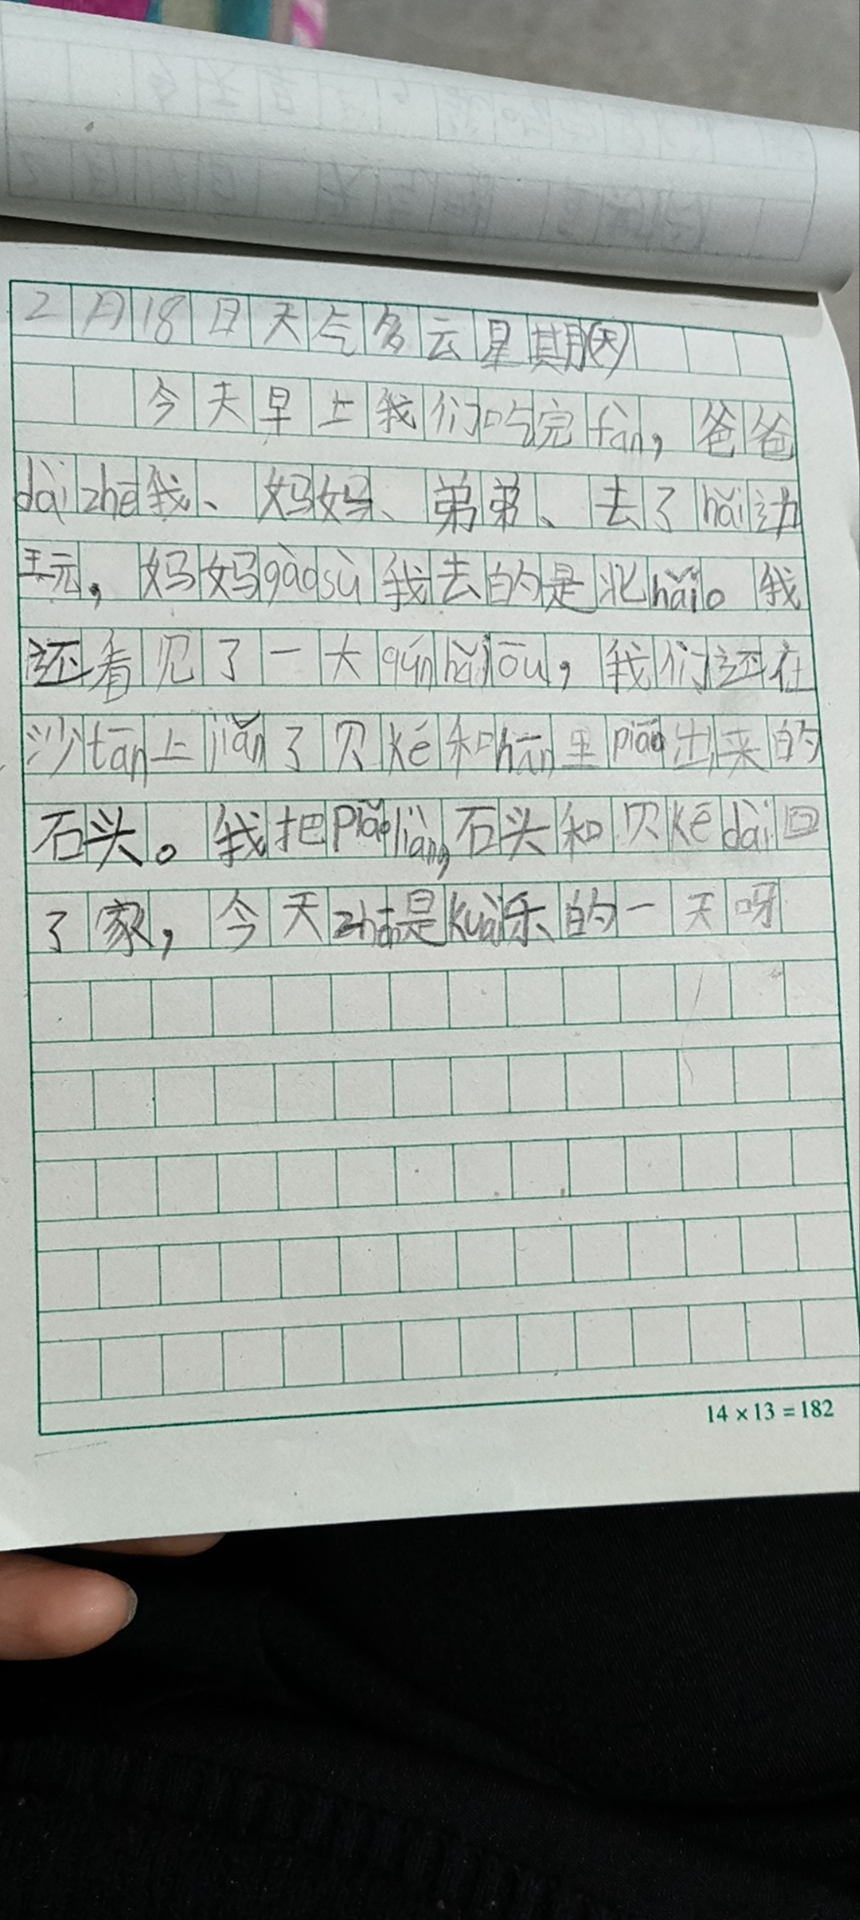 2月18日天气多云星期(天)
今天早上我们吃完fàn，爸爸
dài zhe我、妈妈、弟弟、去了hǎi边
玩，妈妈gàosù我去的是北hǎi。我
还看见了一大qún hǎi ōu，我们还在
沙tān上jiǎn了贝ké和hǎi里piāo出来的
石头。我把piàoliàng石头和贝ké dài回
了家，今天zhēn是kuài乐的一天呀
14×13=182